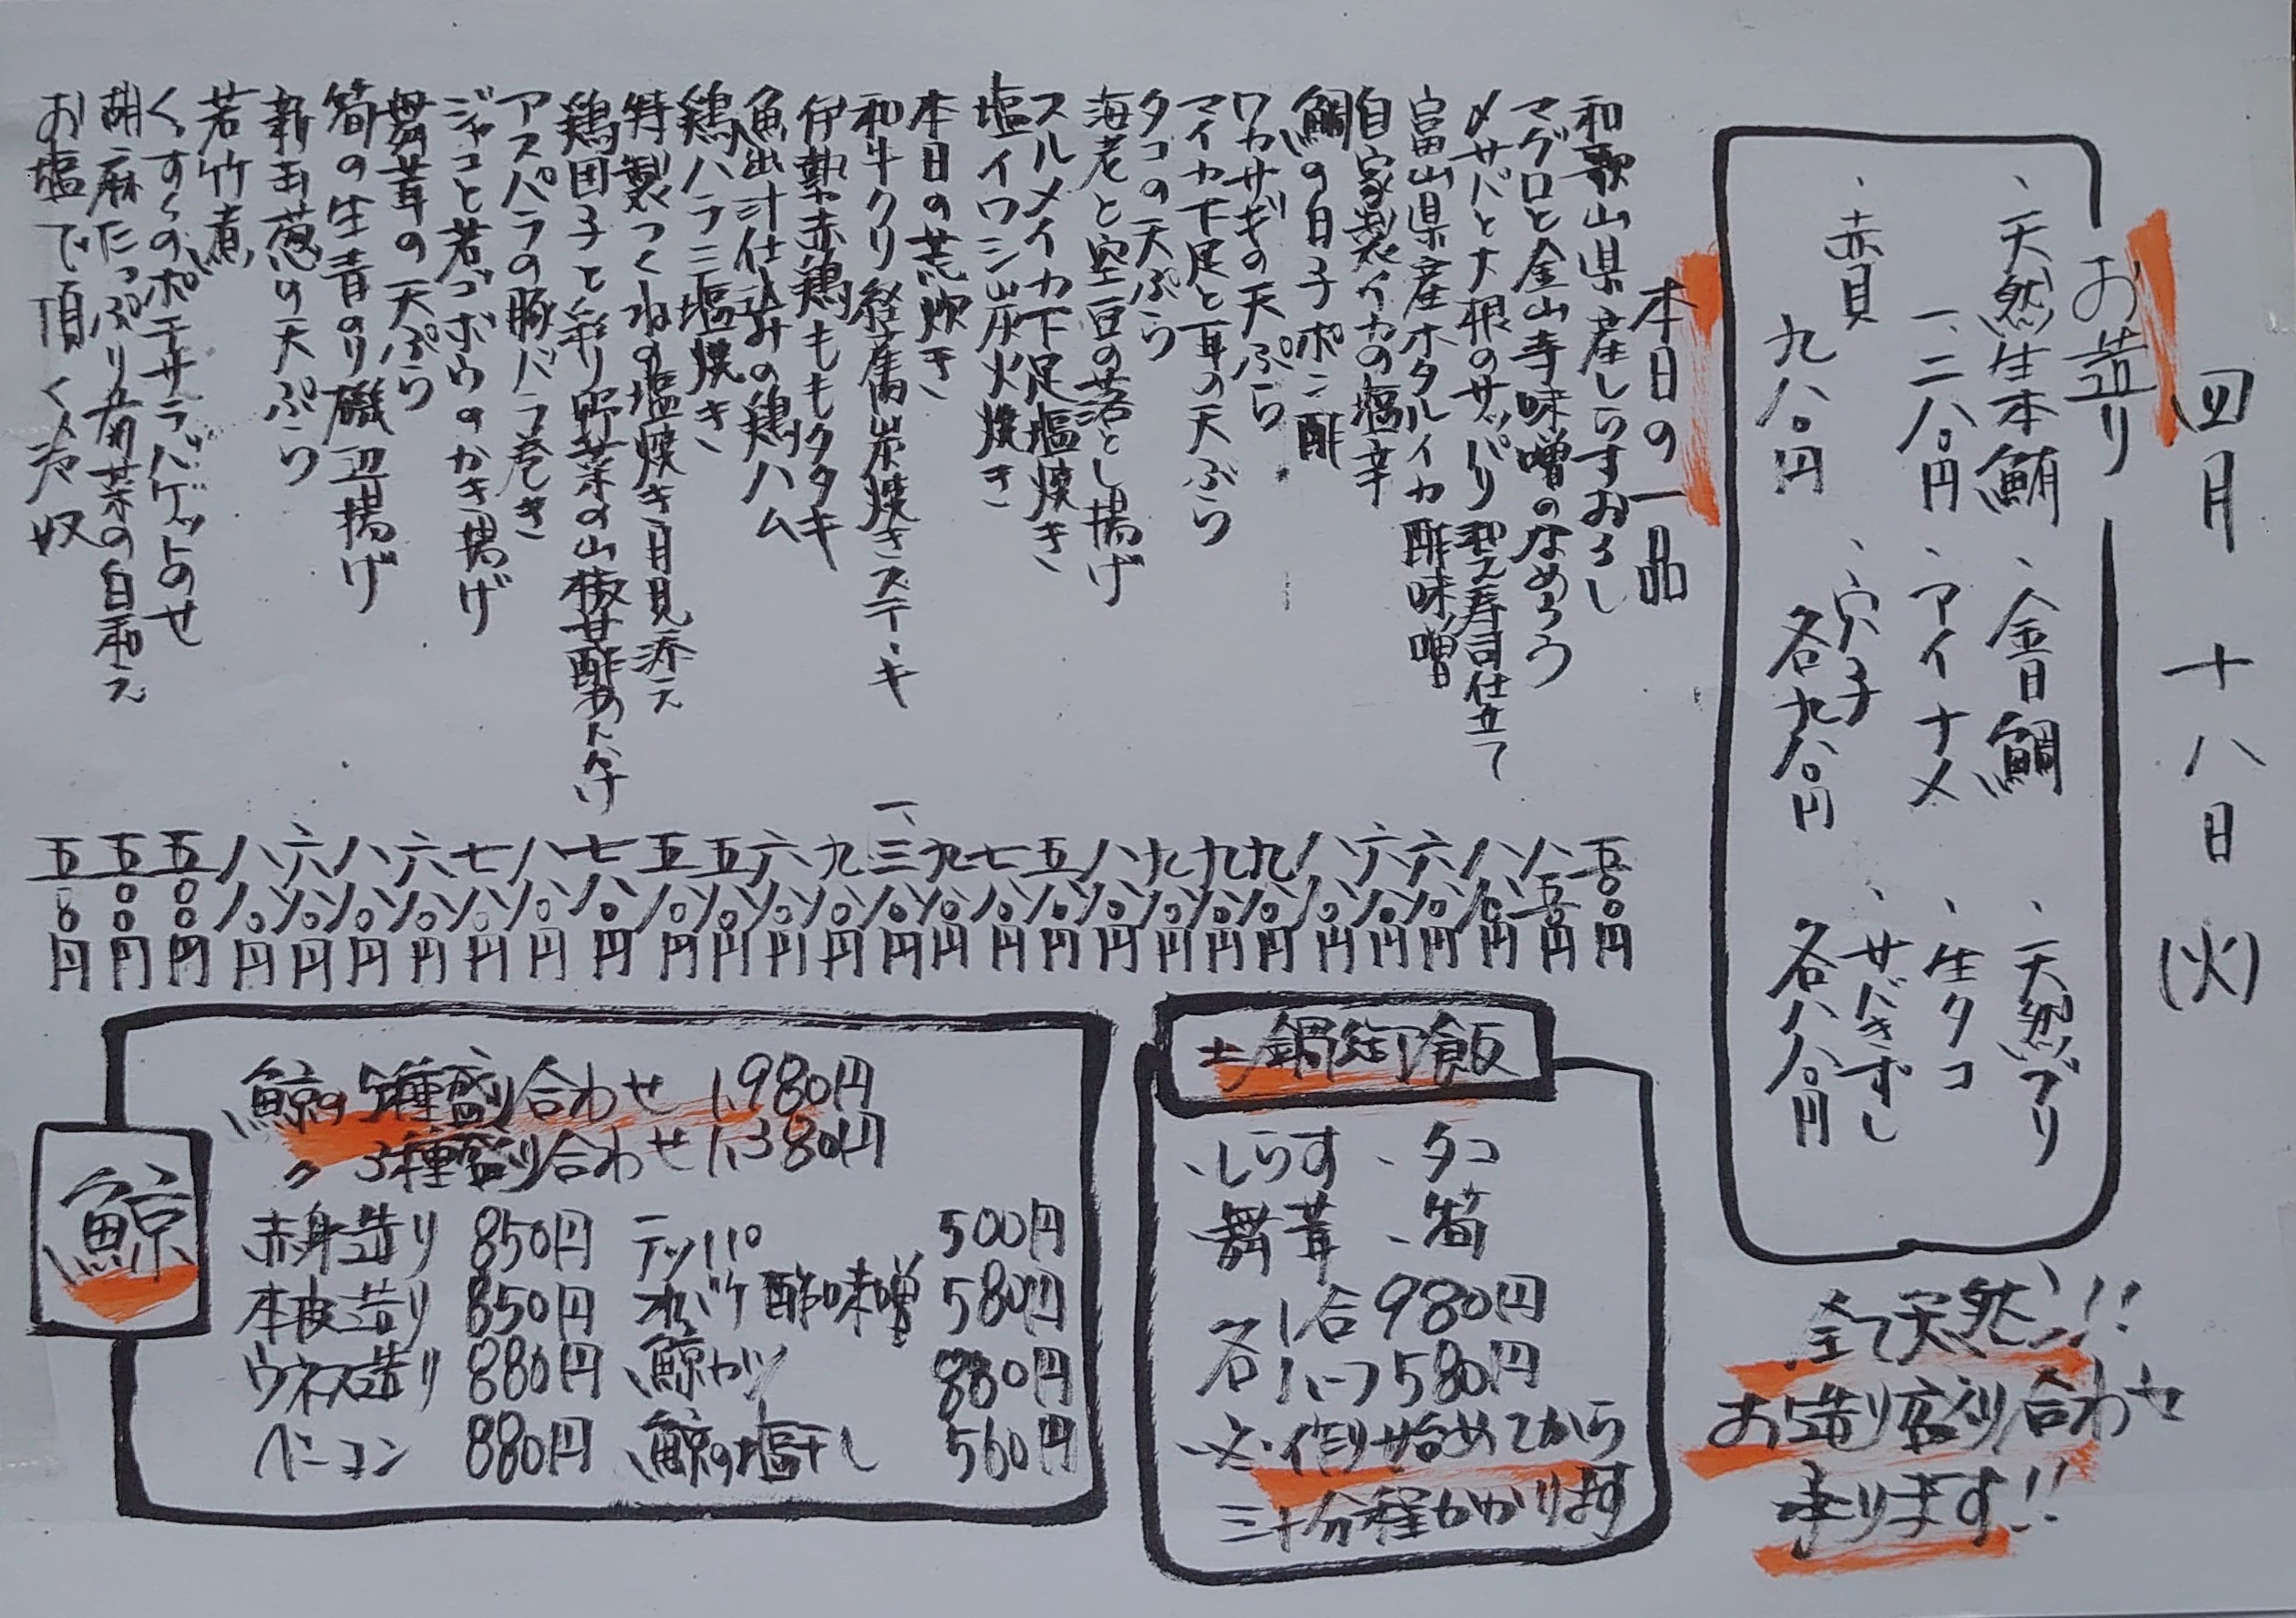 四月 十八日 (火)
お造り
、天然生本鮪 、金目鯛 、天然ブリ
一、二八〇円 、アイナメ 、生タコ
、赤貝 、穴子 、サバきずし
九八〇円 各九八〇円 各八八〇円
全て天然!!
お造り盛り合わせ
承ります!!
本日の一品
和歌山県産しらすおろし 五〇〇円
マグロと金山寺味噌のなめろう 八五〇円
〆サバと大根のサッパリ押え寿司仕立て 八八〇円
富山県産ホタルイカ酢味噌 六八〇円
自家製イカの塩辛 六八〇円
鯛の白子ポン酢 八八〇円
ワカサギの天ぷら 九八〇円
マイカ下足と耳の天ぷら 九八〇円
タコの天ぷら 九八〇円
海老と空豆の落とし揚げ 八八〇円
スルメイカ下足塩焼き 五八〇円
塩イワシ炭火焼き 七八〇円
本日の荒炊き 九八〇円
和牛クリ 炭焼きステーキ 一、三八〇円
伊勢赤鶏ももタタキ 九八〇円
魚出汁仕込みの鶏ハム 六八〇円
鶏ハラミ塩焼き 五八〇円
特製つくねの塩焼き月見添え 五八〇円
鶏団子と彩り野菜の山椒甘酢あんかけ 七八〇円
アスパラの豚バラ巻き 八八〇円
ジャコと若ゴボウのかき揚げ 七八〇円
舞茸の天ぷら 六八〇円
筍の生青のり磯辺揚げ 八八〇円
新玉葱の天ぷら 六八〇円
若竹煮 八八〇円
くすくのポテサラバゲットのせ 五〇〇円
胡麻たっぷり 菜の白和え 五〇〇円
お塩で頂く冷奴 五〇〇円
土鍋御飯
、しらす 、タコ
、舞茸 、筍
各1合980円
各1/2つ580円
※作り始めてから
三十分程かかります
鯨
鯨の5種盛り合わせ 1,980円
〃 3種盛り合わせ 1,380円
赤身造り 850円 テッパ 500円
本皮造り 850円 オバケ酢味噌 580円
ウネス造り 880円 鯨カツ 880円
ベーコン 880円 鯨の塩干し 560円